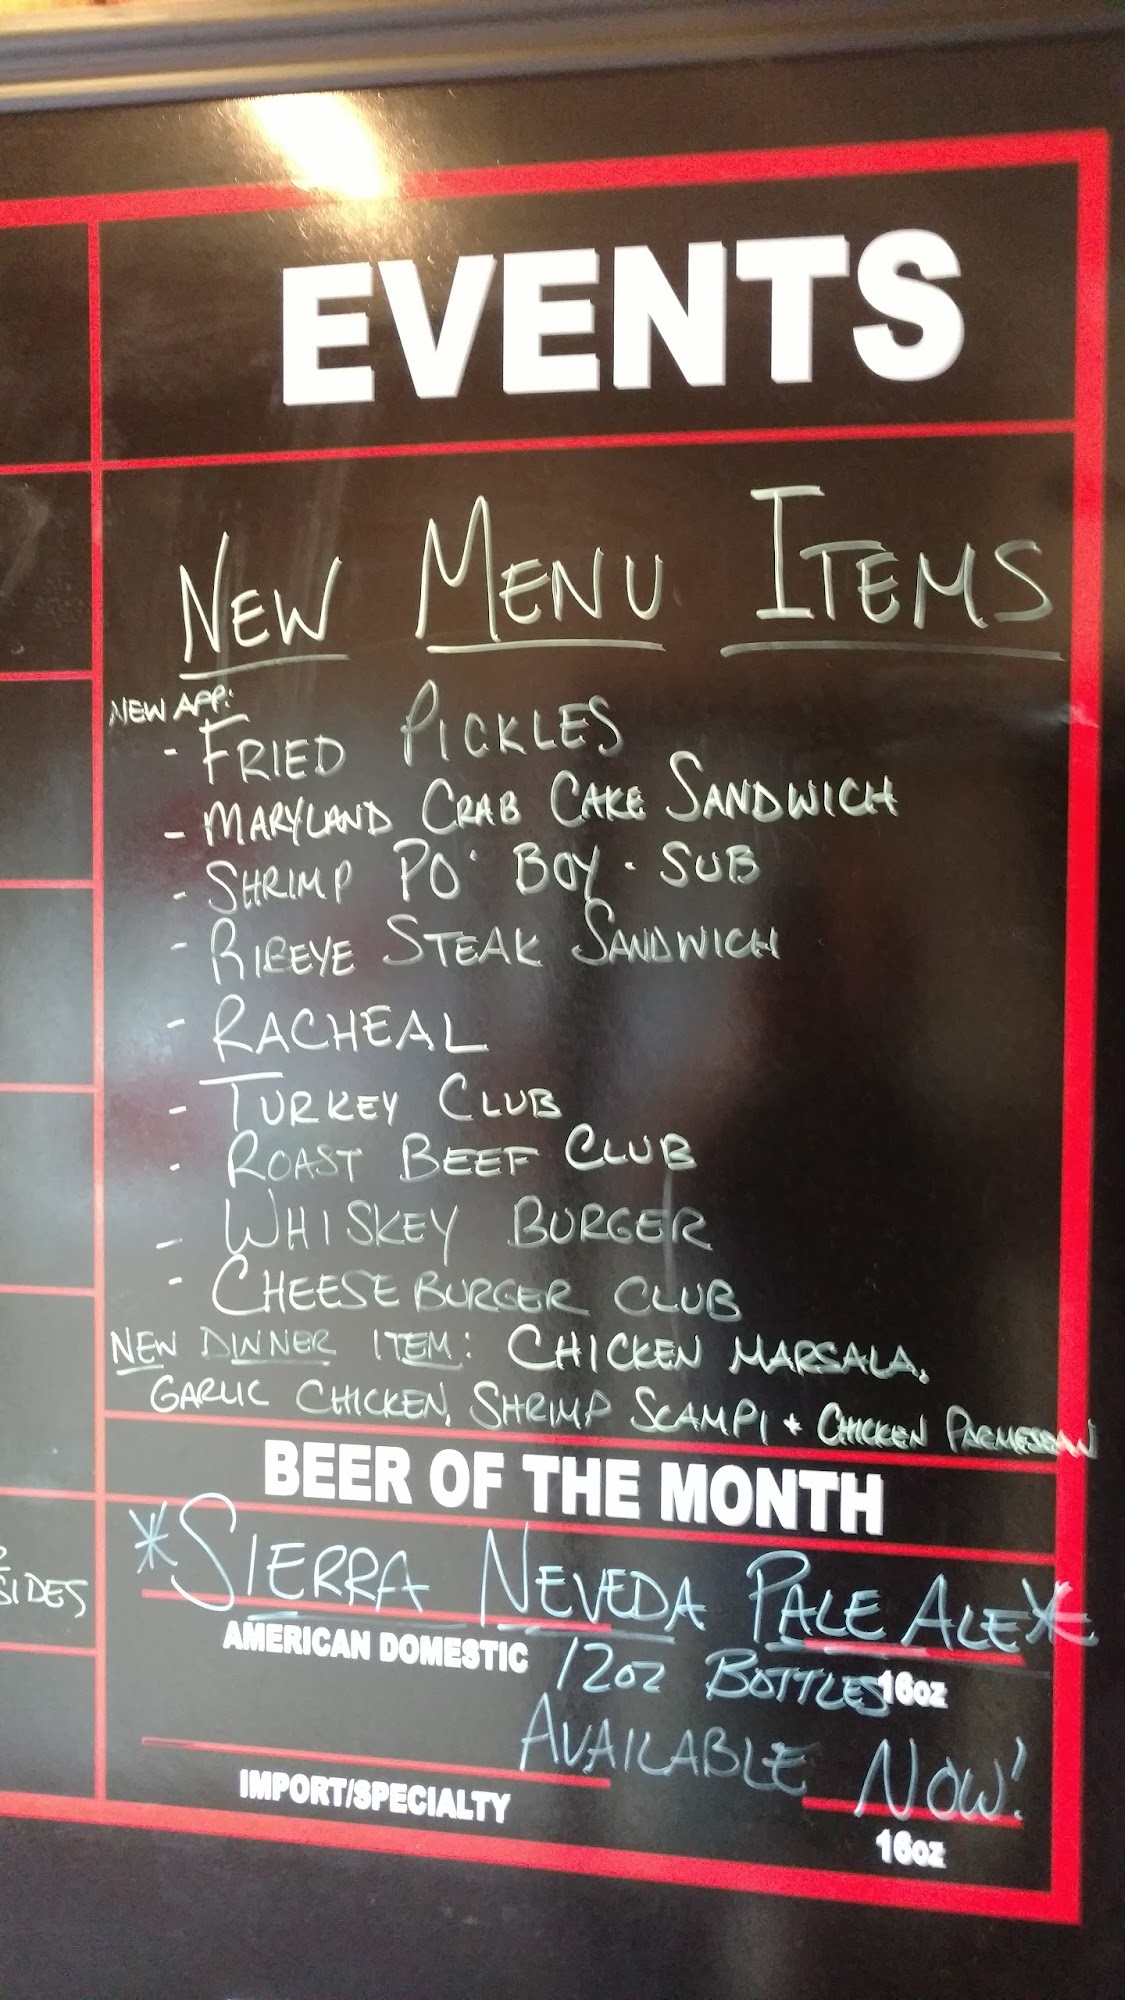 EVENTS
NEW MENU ITEMS
NEW APP:
- FRIED PICKLES
- MARYLAND CRAB CAKE SANDWICH
- SHRIMP PO' BOY - SUB
- RIBEYE STEAK SANDWICH
- RACHEAL
- TURKEY CLUB
- ROAST BEEF CLUB
- WHISKEY BURGER
- CHEESEBURGER CLUB
NEW DINNER ITEM: CHICKEN MARSALA,
GARLIC CHICKEN, SHRIMP SCAMPI + CHICKEN PARMESEAN
BEER OF THE MONTH
*SIERRA NEVEDA PALE ALE*
AMERICAN DOMESTIC
12oz BOTTLES
16oz
AVAILABLE NOW!
IMPORT/SPECIALTY
16oz
SIDES